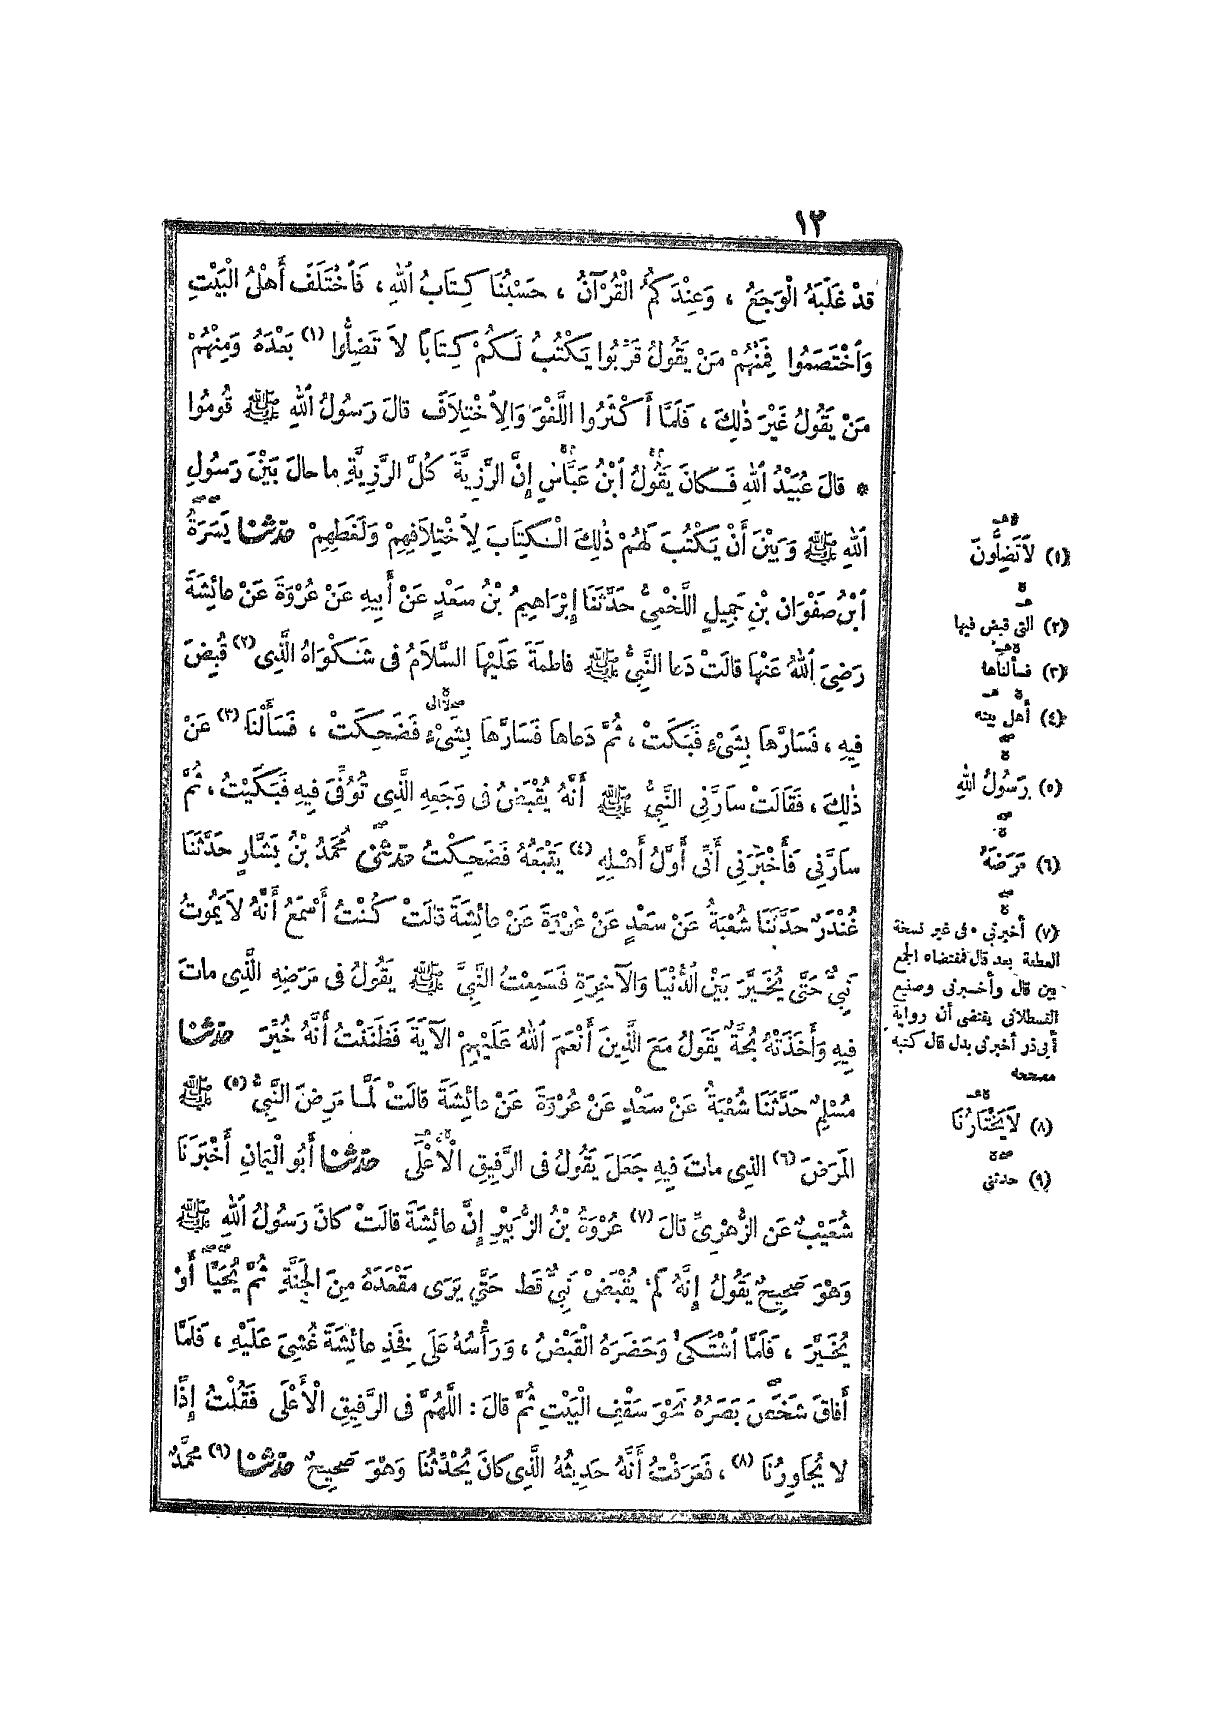 ١٢
قَدْ غَلَبَهُ الْوَجَعُ ، وَعِنْدَكُمُ الْقُرْآنُ ، حَسْبُنَا كِتَابُ اللهِ ، فَاخْتَلَفَ أَهْلُ الْبَيْتِ
وَاخْتَصَمُوا فَمِنْهُمْ مَنْ يَقُولُ قَرِّبُوا يَكْتُبُ لَكُمْ كِتَابًا لاَ تَضِلُّوا (١) بَعْدَهُ وَمِنْهُمْ
مَنْ يَقُولُ غَيْرَ ذٰلِكَ ، فَلَمَّا أَكْثَرُوا اللَّغْوَ وَالِاخْتِلاَفَ قالَ رَسُولُ اللهِ ﷺ قُومُوا
* قالَ عُبَيْدُ اللهِ فَكانَ يَقُولُ ابْنُ عَبَّاسٍ إِنَّ الرَّزِيَّةَ كُلَّ الرَّزِيَّةِ ما حالَ بَيْنَ رَسُولِ
اللهِ ﷺ وَبَيْنَ أَنْ يَكْتُبَ لَهُمْ ذٰلِكَ الْكِتَابَ لِاخْتِلاَفِهِمْ وَلَغَطِهِمْ حدّثنا يَسَرَةُ
ابْنُ صَفْوَانَ بْنِ جَمِيلٍ اللَّخْمِيُّ حَدَّثَنَا إِبْرَاهِيمُ بْنُ سَعْدٍ عَنْ أَبِيهِ عَنْ عُرْوَةَ عَنْ عائِشَةَ
رَضِيَ اللهُ عَنْهَا قالَتْ دَعا النَّبِيُّ ﷺ فاطِمَةَ عَلَيْهَا السَّلاَمُ فِى شَكْوَاهُ الَّذِى (٢) قُبِضَ
فِيهِ ، فَسَارَّهَا بِشَىْءٍ فَبَكَتْ ، ثُمَّ دَعاها فَسَارَّهَا بِشَىْءٍ فَضَحِكَتْ ، فَسَأَلْنَا (٣) عَنْ
ذٰلِكَ ، فَقَالَتْ سارَّنِى النَّبِيُّ ﷺ أَنَّهُ يُقْبَضُ فِى وَجَعِهِ الَّذِى تُوُفِّىَ فِيهِ فَبَكَيْتُ ، ثُمَّ
سارَّنِى فَأَخْبَرَنِى أَنِّى أَوَّلُ أَهْلِهِ (٤) يَتْبَعُهُ فَضَحِكْتُ حدّثنى مُحَمَّدُ بْنُ بَشَّارٍ حَدَّثَنَا
غُنْدَرٌ حَدَّثَنَا شُعْبَةُ عَنْ سَعْدٍ عَنْ عُرْوَةَ عَنْ عائِشَةَ قالَتْ كُنْتُ أَسْمَعُ أَنَّهُ لاَ يَمُوتُ
نَبِيٌّ حَتَّى يُخَيَّرَ بَيْنَ الدُّنْيَا وَالآخِرَةِ فَسَمِعْتُ النَّبِيَّ ﷺ يَقُولُ فِى مَرَضِهِ الَّذِى ماتَ
فِيهِ وَأَخَذَتْهُ بُحَّةٌ يَقُولُ مَعَ الَّذِينَ أَنْعَمَ اللهُ عَلَيْهِمْ الآيَةَ فَظَنَنْتُ أَنَّهُ خُيِّرَ حدّثنا
مُسْلِمٌ حَدَّثَنَا شُعْبَةُ عَنْ سَعْدٍ عَنْ عُرْوَةَ عَنْ عائِشَةَ قالَتْ لَمَّا مَرِضَ النَّبِيُّ (٥) ﷺ
المَرَضَ (٦) الَّذِى ماتَ فِيهِ جَعَلَ يَقُولُ فِى الرَّفِيقِ الْأَعْلَى حدّثنا أَبُو الْيَمَانِ أَخْبَرَنَا
شُعَيْبٌ عَنِ الزُّهْرِيِّ قالَ (٧) عُرْوَةُ بْنُ الزُّبَيْرِ إِنَّ عائِشَةَ قالَتْ كانَ رَسُولُ اللهِ ﷺ
وَهْوَ صَحِيحٌ يَقُولُ إِنَّهُ لَمْ يُقْبَضْ نَبِيٌّ قَطُّ حَتَّى يَرَى مَقْعَدَهُ مِنَ الجَنَّةِ ثُمَّ يُحَيَّا أَوْ
يُخَيَّرَ ، فَلَمَّا اشْتَكى وَحَضَرَهُ الْقَبْضُ ، وَرَأْسُهُ عَلَى فَخِذِ عائِشَةَ غُشِىَ عَلَيْهِ ، فَلَمَّا
أَفاقَ شَخَصَ بَصَرُهُ نَحْوَ سَقْفِ الْبَيْتِ ثُمَّ قالَ : اللَّهُمَّ فِى الرَّفِيقِ الْأَعْلَى فَقُلْتُ إِذًا
لاَ يُجَاوِرُنَا (٨) ، فَعَرَفْتُ أَنَّهُ حَدِيثُهُ الَّذِى كانَ يُحَدِّثُنَا وَهْوَ صَحِيحٌ حدّثنا (٩) مُحَمَّدٌ
(١) لاَ تَضِلُّونَ
(٢) التى قبض فيها
(٣) فسألناها
(٤) أهل بيته
(٥) رَسُولُ اللهِ
(٦) مَرَضَهُ
(٧) أخبرنى • فى غير نسخة
العطفة بعد قال فمقتضاه الجمع
بين قال وأخبرنى وصنيع
القسطلانى يقتضى أن رواية
أبى ذر أخبرنى بدل قال كتبه
مصححه
(٨) لاَ يَخْتَارُنَا
(٩) حدثنى